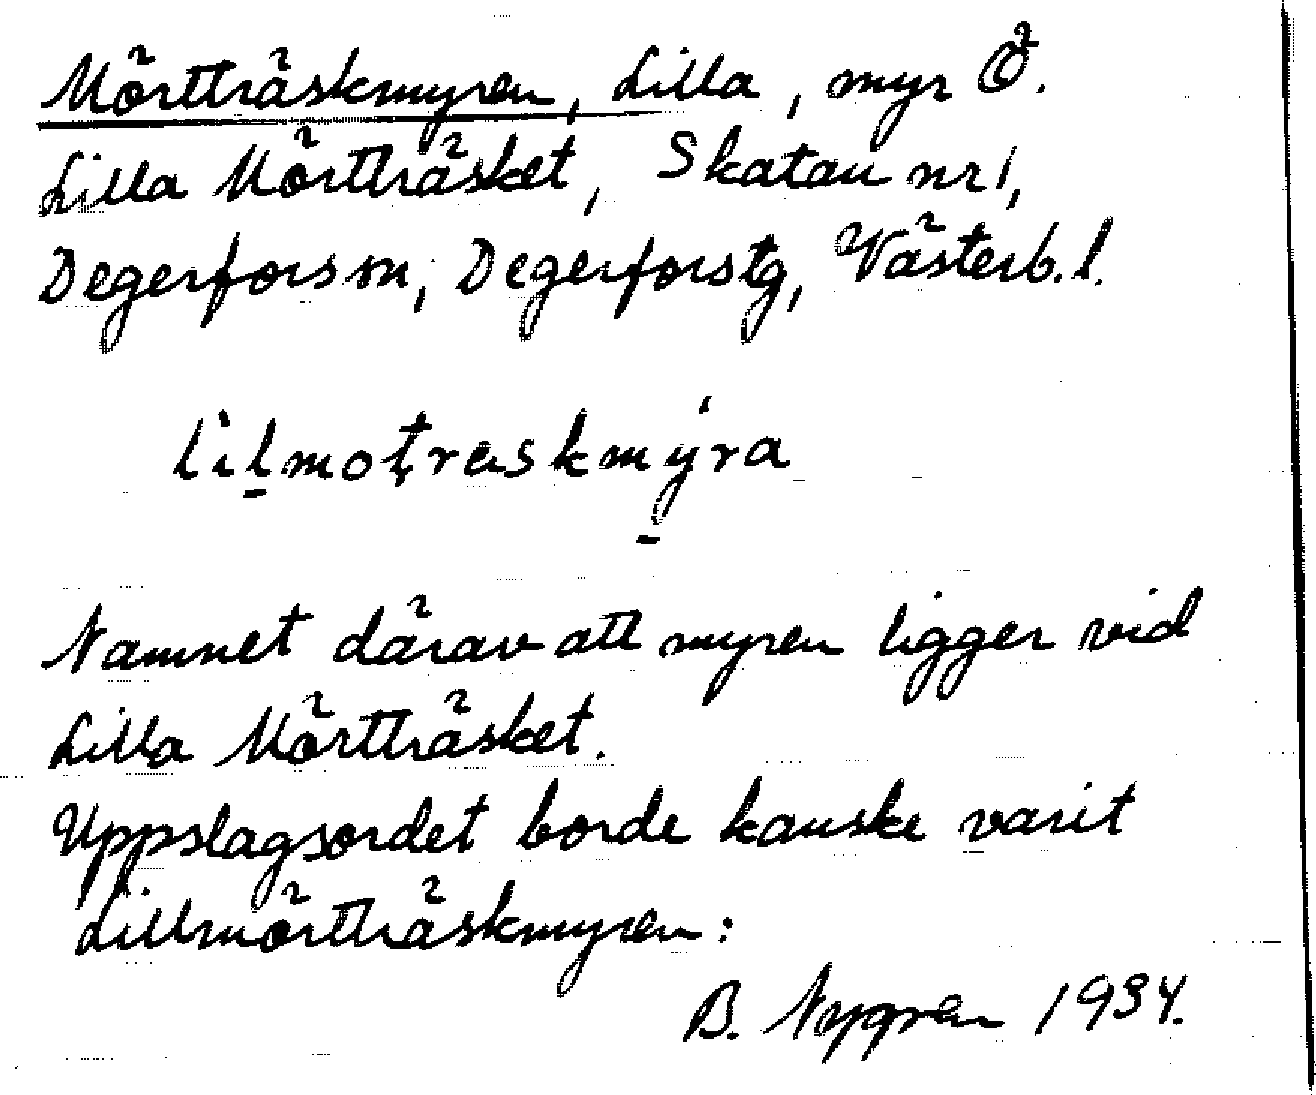 Mörtträskmyren, Lilla, myr Ö.
Lilla Mörtträsket, Skatan nr 1,
Degerfors sn, Degerfors tg, Västerb. l.
lìl̠moţraskmý̠ra
Namnet därav att myren ligger vid
Lilla Mörtträsket.
Uppslagsordet borde kanske varit
Lillmörtträskmyren:
B. Nygren 1934.